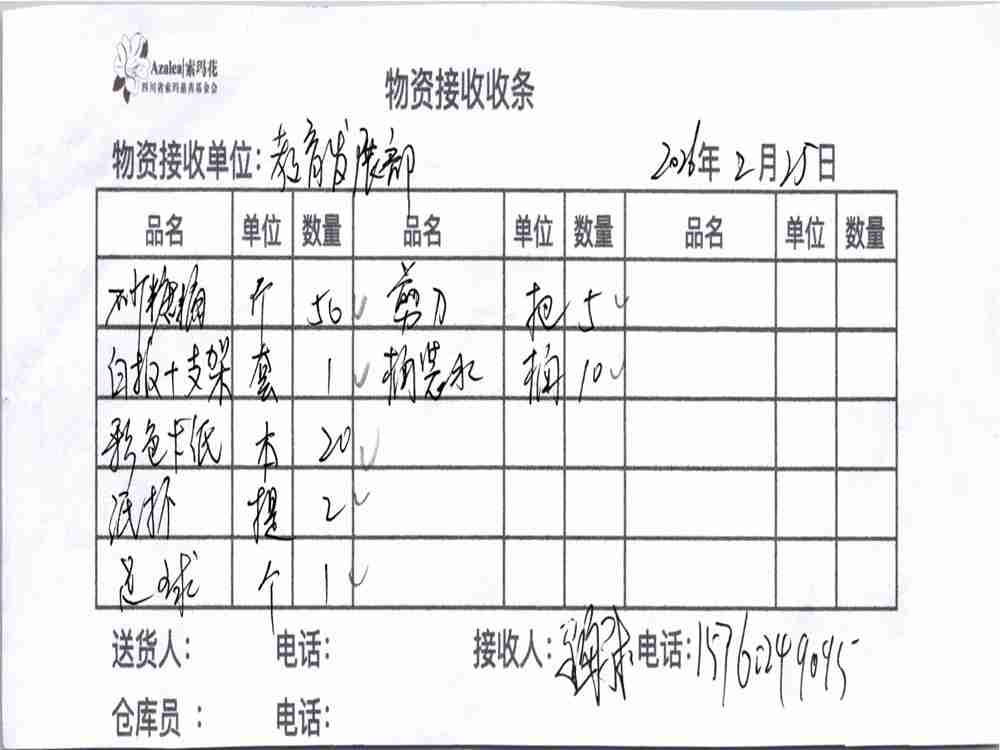 Azalea 索玛花
四川省索玛慈善基金会
物资接收收条
物资接收单位：教育发展部 2026年2月25日
品名 单位 数量 品名 单位 数量 品名 单位 数量
个 50 剪刀 把 5
白板+支架 套 1 桶装水 桶 10
彩色卡纸 本 20
提 2
个 1
送货人： 电话： 接收人： 电话：15760249045
仓库员： 电话：